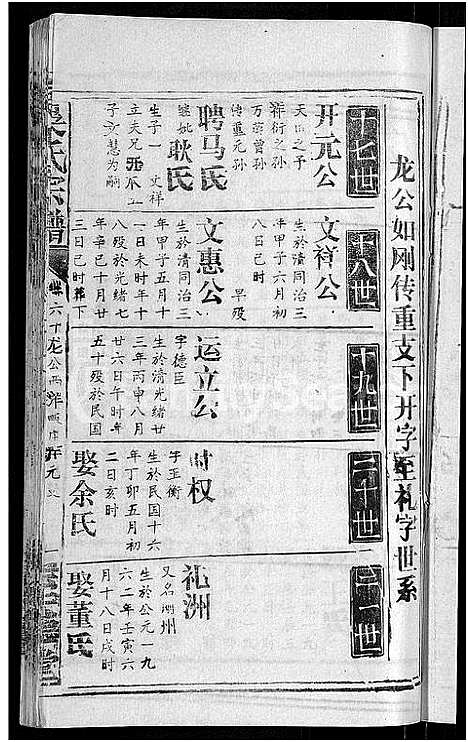 龙公如刚传重支下开字至礼字世系
十七世
开元公
天山之予
祥衍之孙
万荣曾孙
传重元孙
聘马氏
继妣耿氏
生子一 文祥
子文慧为嗣
十八世
文祥公
生於清同治三
年甲子六月初
八日己时 早殁
文惠公
生於清同治三
年甲子五月十
一日未时年十
八殁於光绪七
年辛巳十月廿
三日已时葬下
十九世
运立公
字德臣
生於清光绪廿
三年丙申八月
廿六日午时年
五十殁於民国
二十世
时权
字玉衡
生於民国十六
年丁卯五月初
二日亥时
娶余氏
二一世
礼洲
又名湖州
生於公元一九
六二年壬寅六
月十八日戌时
娶董氏
氏宗谱